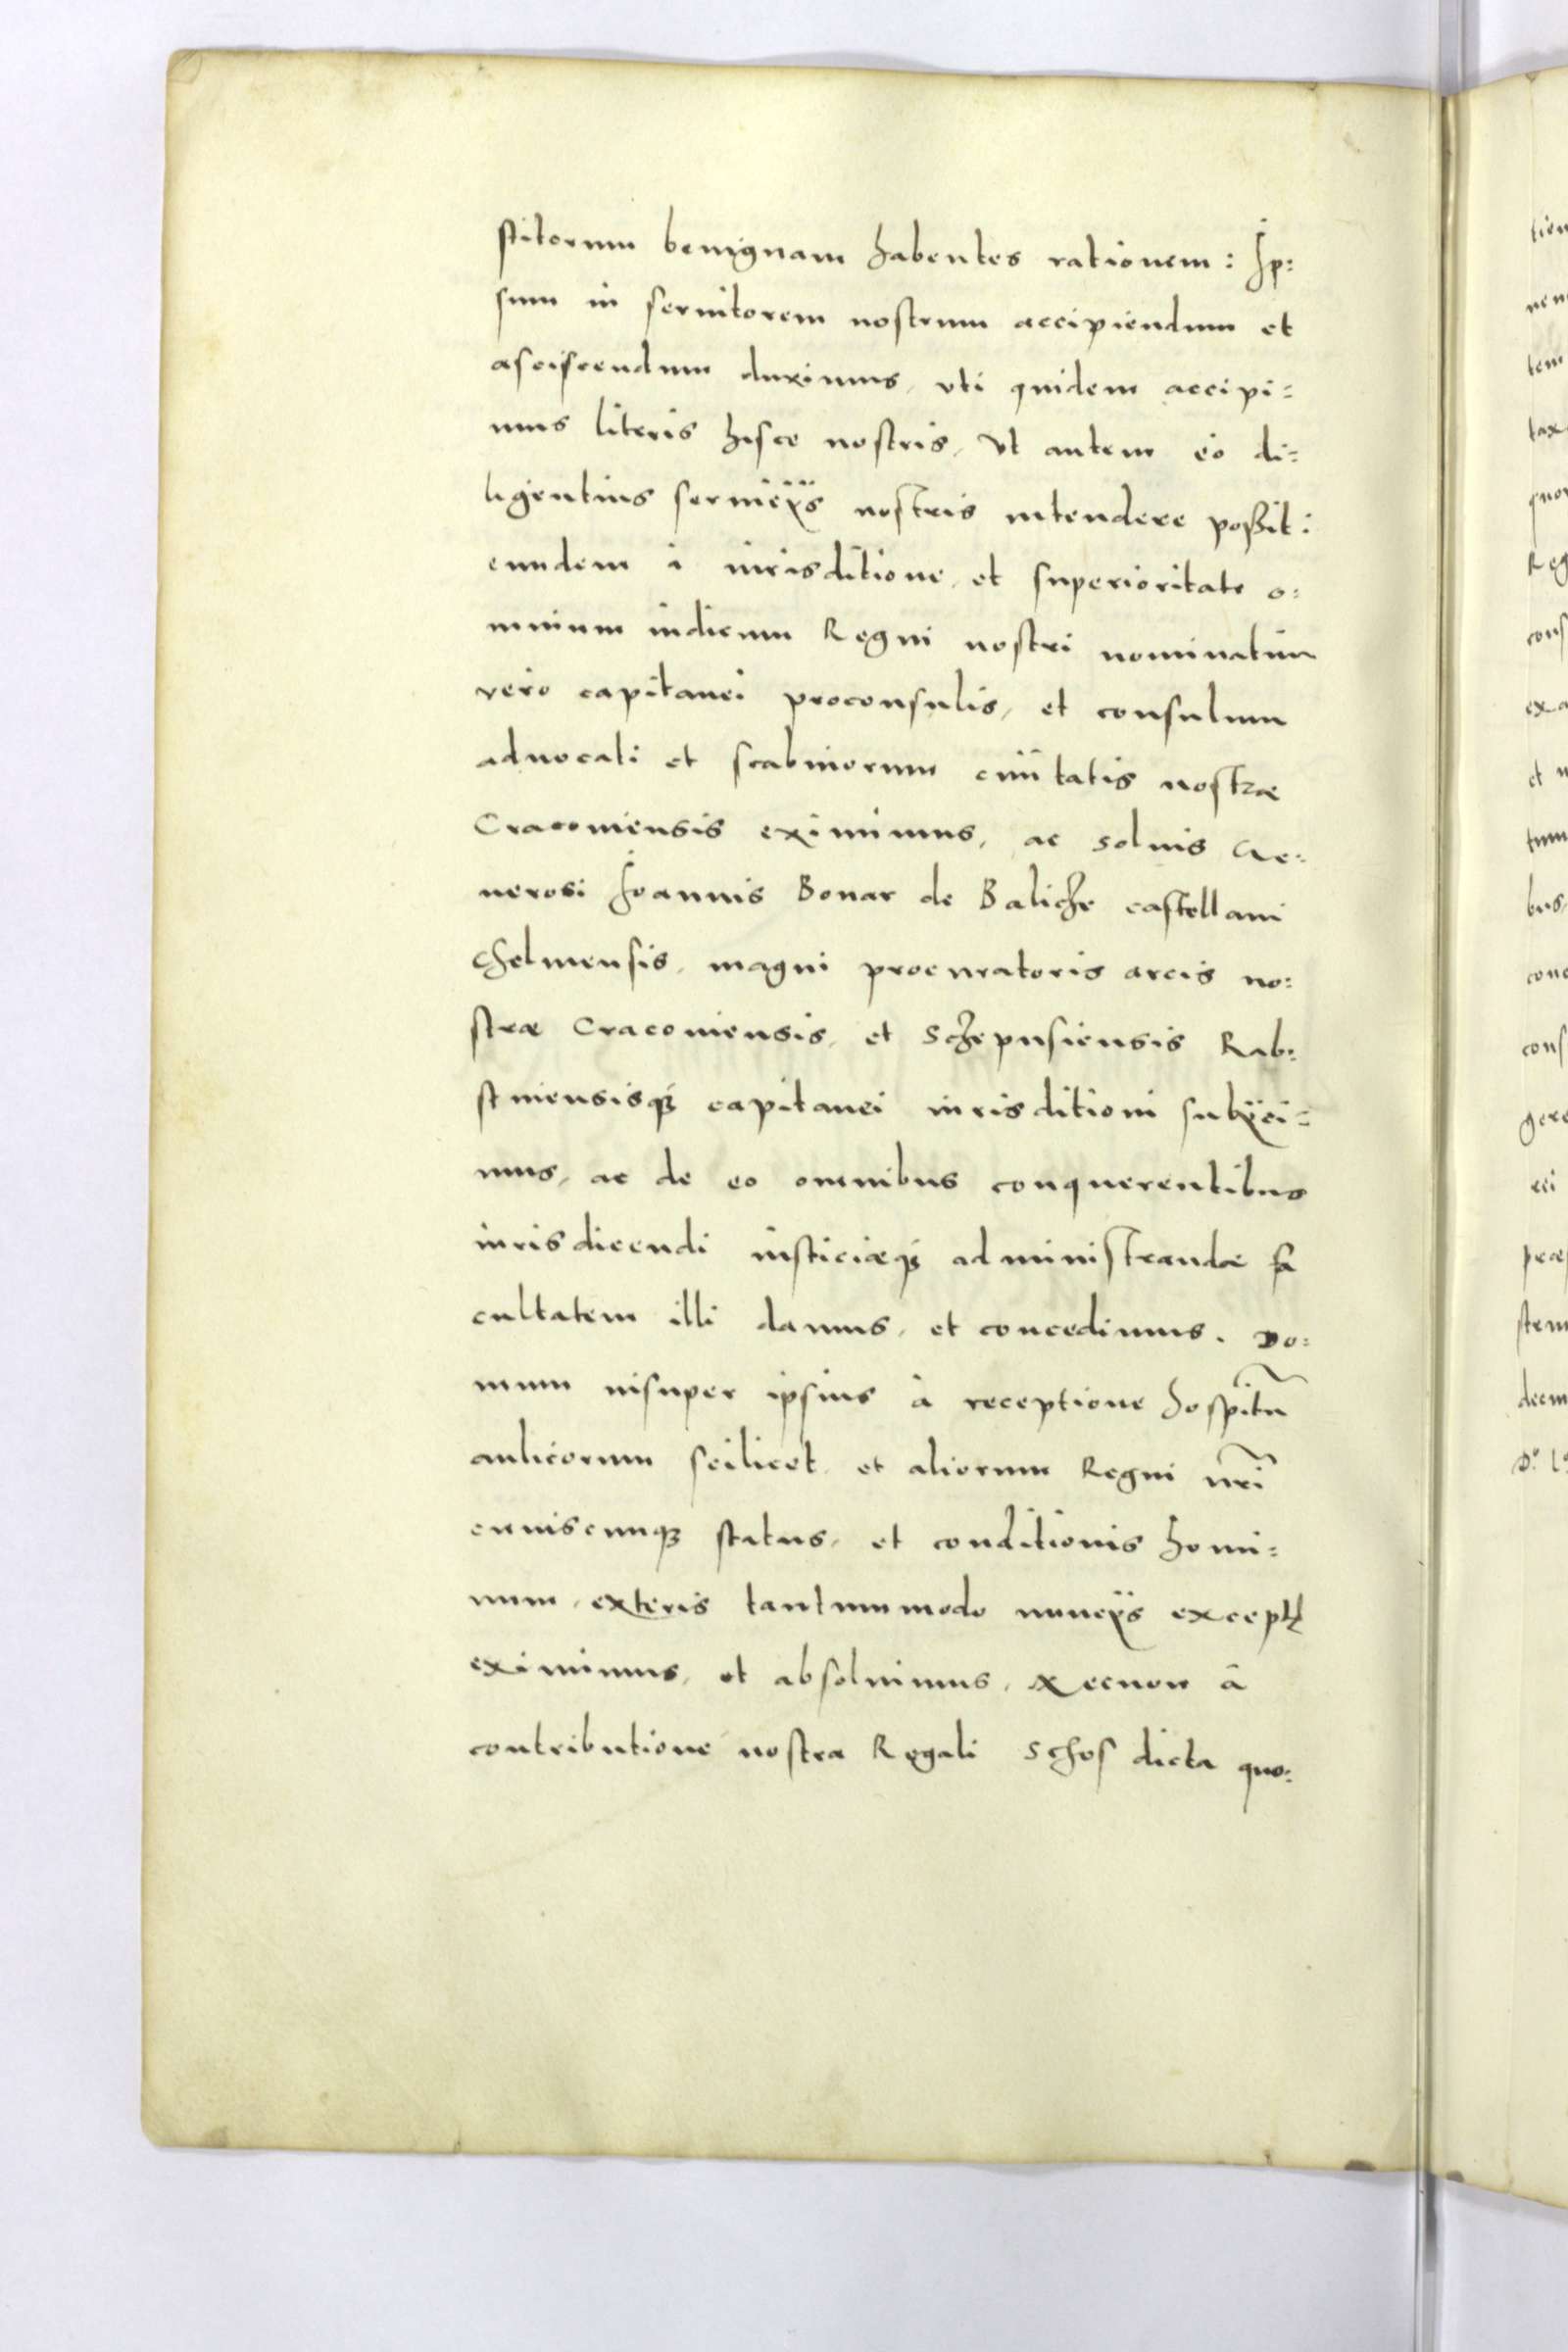 stitorum benignam habentes rationem : Ip:
sum in seruitorem nostrum accipiendum et
asciscendum duximus, vti quidem accipi=
mus literis hisce nostris, Vt autem eo di=
ligentius seruicijs nostris intendere possit :
eundem à iurisditione, et superioritate o:
mnium iudicum Regni nostri nominatim
vero capitanei proconsulis, et consulum
aduocati et scabinorum ciuitatis nostræ
Cracouiensis eximimus, ac solius Ge:
nerosi Joannis Bonar de Balicze castellani
chelmensis, magni procuratoris arcis no:
stræ Cracouiensis, et Sczepusiensis Rab:
stinensisq3 capitanei iurisditioni subijci=
mus, ac de eo omnibus conquerentibus
iurisdicendi iusticiæq3 administrandæ fa
cultatem illi damus, et concedimus. Do:
mum insuper ipsius à receptione hospitũ
aulicorum scilicet, et aliorum Regni nr̃i
cuiuscunq3 status, et conditionis homi=
num, exteris tantummodo nuncijs exceptꝭ
eximimus, et absoluimus, Necnon à
contributione nostra Regali Schos dicta quo:
tien
tem
tax
Reg
cons
ex a
et
bus,
conc
cons
gere
cci
præ
decim